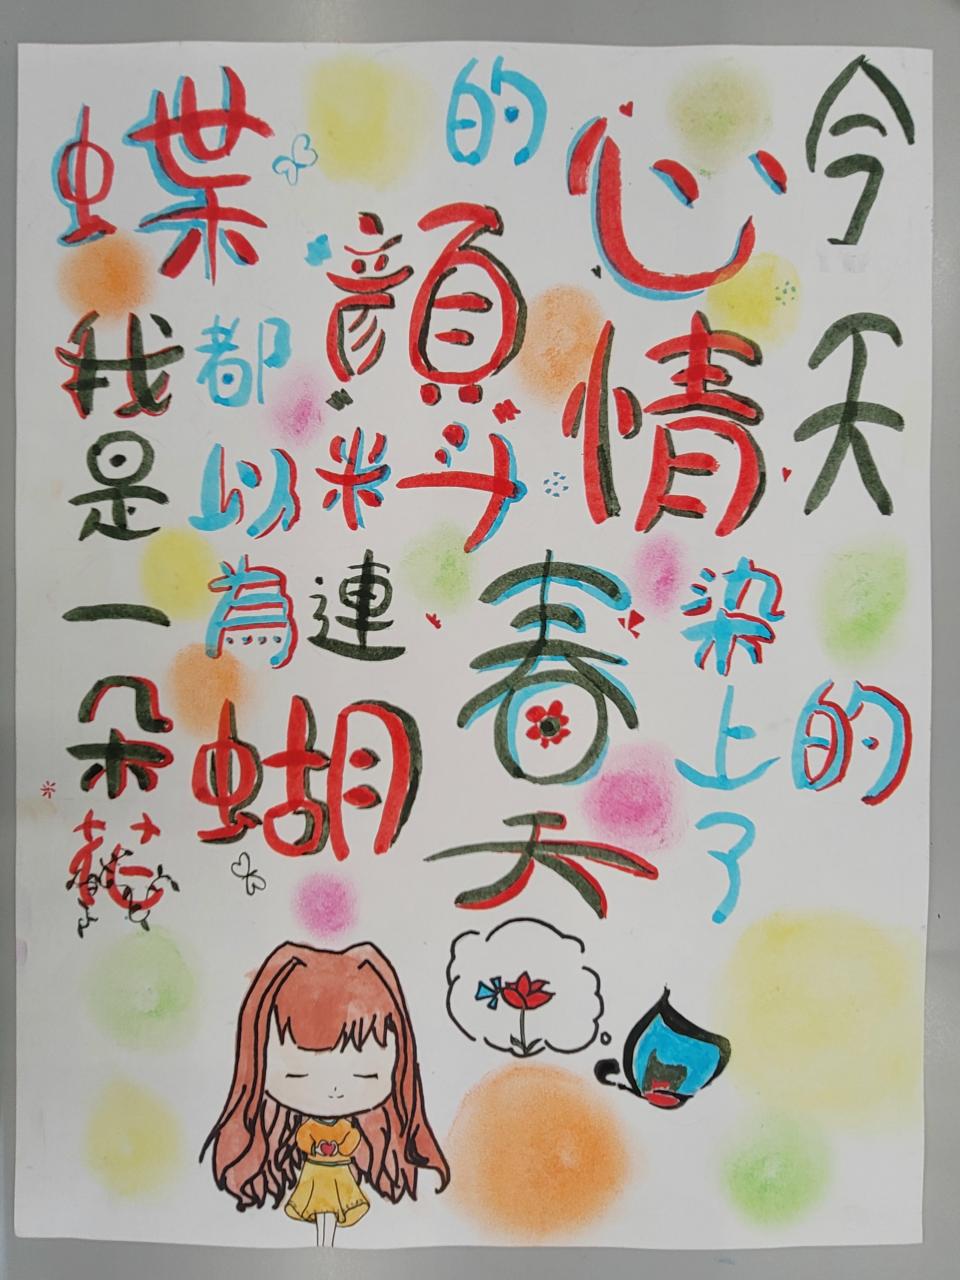 今天的
心情染上了
春天
的顏料
連蝴
蝶都以為
我是一朵花